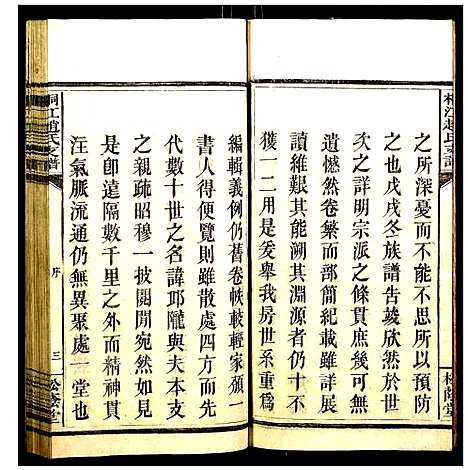 桐江趙氏支譜
之所深憂而不能不思以預防
之也戊戌冬族譜告竣欣然於世
次之詳明宗派之條貫庶幾可無
遺憾然卷繁而部簡紀載雖詳展
讀維艱其能溯其淵源者百不
獲一二用是爰舉我房世系重為
松蔭堂
編輯義例仍舊卷帙較輕家頒一
書人得便覽則雖散處四方而先
代數十世之名諱邱隴與夫本支
之親疏昭穆一披閱閒宛然如見
是卽遠隔數千里之外而精神貫
注氣脈流通仍無異聚處一堂也
桐江趙氏支譜
序
三
松蔭堂